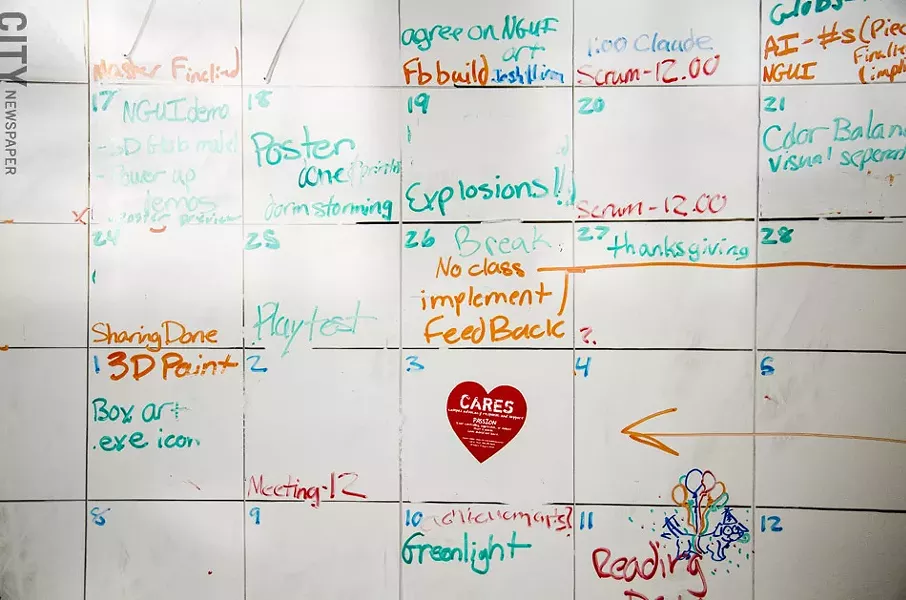 CITY NEWSPAPER
Master Finalized
agree on NGUI
art
Fb build.
1:00 Claude
Scrum-12.00
Globs-
AI-#s (Piec
NGUI
17 NGUI demo
-3D Glob model
-Power up
demos
18
Poster
done
dormstorming
19
Explosions!!
20
Scrum-12.00
21
Color Balan
visual seperat
24
Sharing Done
25
Playtest
26 Break
No class
implement
FeedBack
27 thanksgiving
?
28
1 3D Paint
Box art
.exe icon
2
Meeting-12
3
CARES
PASSION
4
5
8
9
10 achievements?
Greenlight
11
Reading
12